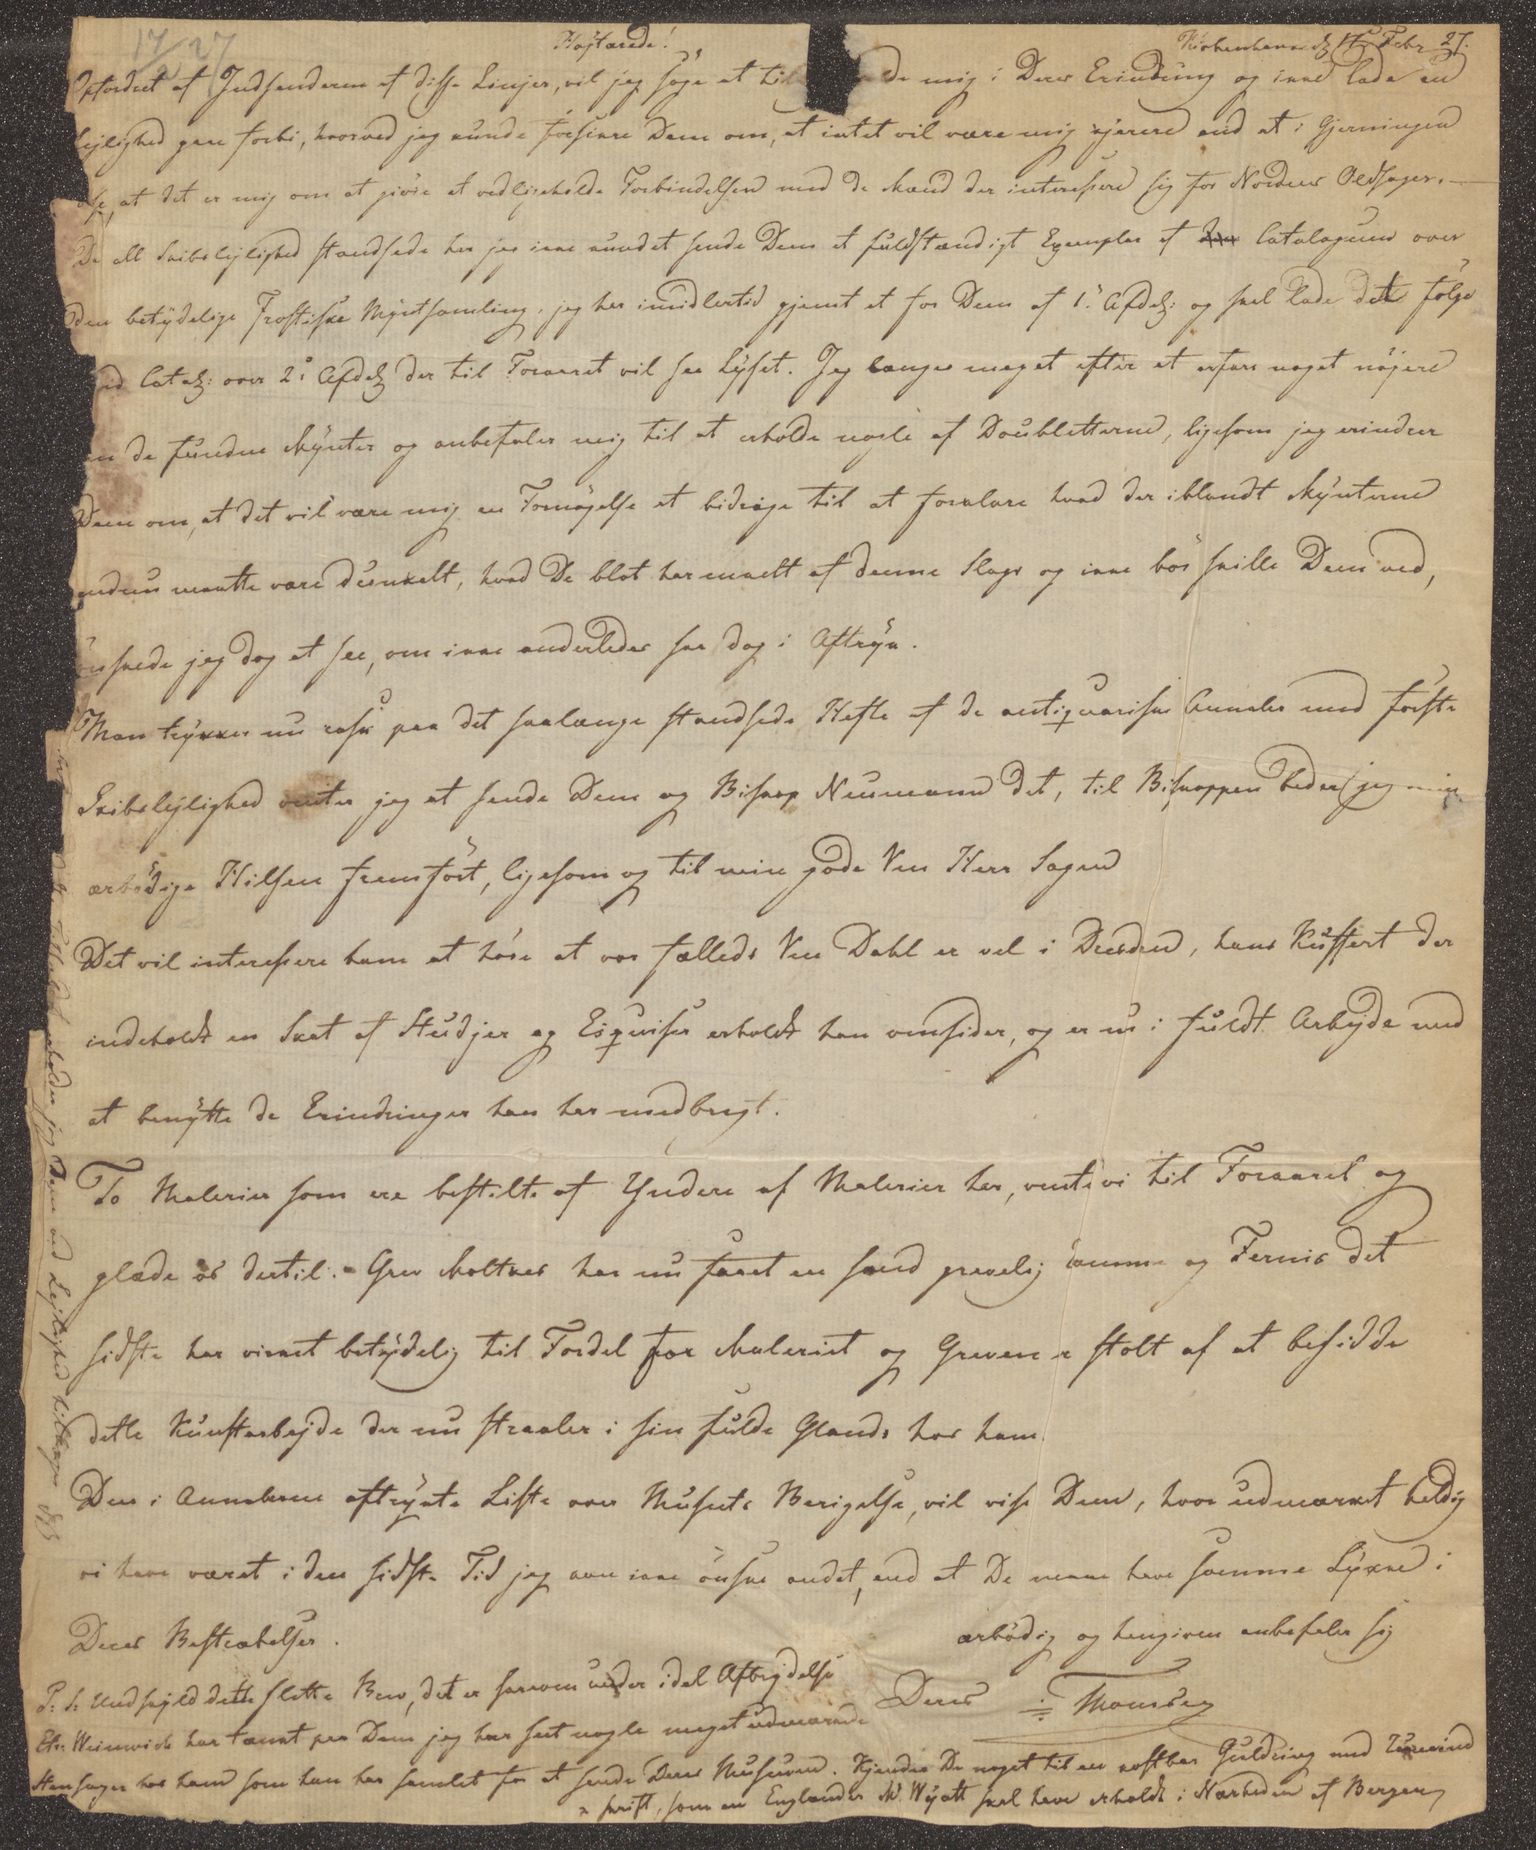 17/2 27
Højtærede! Kiøbenhavn d 17 Febr 27.
Opfordret af Indsenderen af disse Linjer, vil jeg søge at til de mig i Deres Erindring og ikke lade en
Lejlighed gaae forbi, hvorved jeg kunde forsikre Dem om, at intet vil være mig kjærere end at i Gjerningen
at det er mig om at giøre at vedligeholde Forbindelsen med de Mænd der interessere sig for Nordens Oldsager. —
Da all Skibslejlighed standsede har jeg ikke kundet sende Dem et fuldstændigt Exemplar af Catalogerne over
den betydelige Frostiske Myntsamling, jeg har imidlertid gjemt et for Dem af 1. Afdel: og skal lade det følge
med Catal: over 2. Afdel der til Foraaret vil see Lyset. Jeg længes meget efter at erfare noget nøjere
om de fundne Mynter og anbefaler mig til at erholde nogle af Doubletterne, ligesom jeg erindrer
Dem om, at det vil være mig en Fornøjelse at bidrage til at forklare hvad der iblandt Mynterne
endnu maatte være dunkelt, hvad De blot har enkelt af denne Slags og ikke bør skille Dem ved,
ønskede jeg dog at see, om ikke anderledes saa dog i Aftryk.
Man trykker nu rask paa det saalænge standsede Hefte af de antiquariske Annaler med første
Skibslejlighed venter jeg at sende Dem og Biskop Neumann det, til Biskoppen beder jeg min
ærbødige Hilsen fremført, ligesom og til min gode Ven Herr Sagen
Det vil interessere ham at høre at vor fælleds Ven Dahl er vel i Dresden, hans Kuffert der
indeholdt en Skat af Studjer og Esquisser erholdt han omsider, og er nu i fuldt Arbejde med
at benytte de Erindringer han har medbragt.
To Malerier som ere bestilte af Yndere af Malerier her, vente vi til Foraaret og
glæde os dertil. - Grev Moltkes har nu faaet en sand grevelig Ramme og Fernis det
sidste har virket betydelig til Fordel for Maleriet og Greven er stolt af at besidde
dette Kunstarbejde der nu straaler i sin fulde Glands hos ham
Den i Annalerne aftrykte Liste over Museets Berigelse, vil vise Dem, hvor udmærket heldig
vi have været i den sidste Tid jeg kan ikke ønske andet, end at De maae have samme Lykke i
Deres Bestræbelser. ærbødig og hengiven anbefaler sig
P. S. Undskyld dette slette Brev, det er skrevet under idel Afbrydelse Deres Thomsen
Etr: Weinwich har tænkt paa Dem jeg har seet nogle meget udmærkede
Steensager hos ham som han har samlet for at sende Deres Museum. Kjender De noget til en kostbar Guldring med Rune
skrift, som en Englænder Mr. Wyatt skal have erholdt i Nærheden af Bergen
erholder jeg Dem ved Lejlighed tilbage